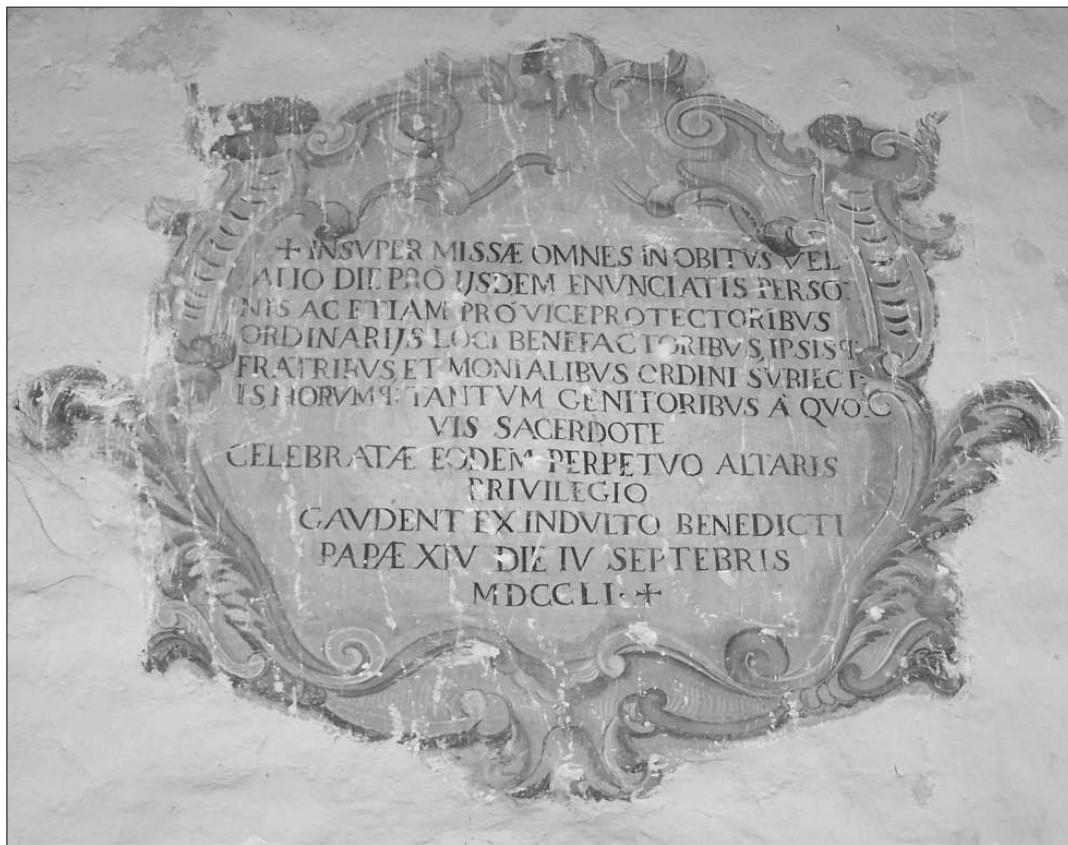 + INSVPER MISSÆ OMNES IN OBITVS VEL
ALIO DIE PRO IJSDEM ENVNCIATIS PERSO:
NIS AC ETIAM PRO VICEPROTECTORIBVS
ORDINARIJS LOCI BENEFACTORIBVS, IPSISQ:
FRATRIBVS, ET MONIALIBVS ORDINI SVBIECT:
IS, HORVMQ: TANTVM GENITORIBVS À QVO:
VIS SACERDOTE
CELEBRATÆ EODEM PERPETVO ALTARIS
PRIVILEGIO
GAVDENT EX INDVLTO BENEDICTI
PAPÆ XIV DIE IV SEPTEBRIS
MDCCLI · +